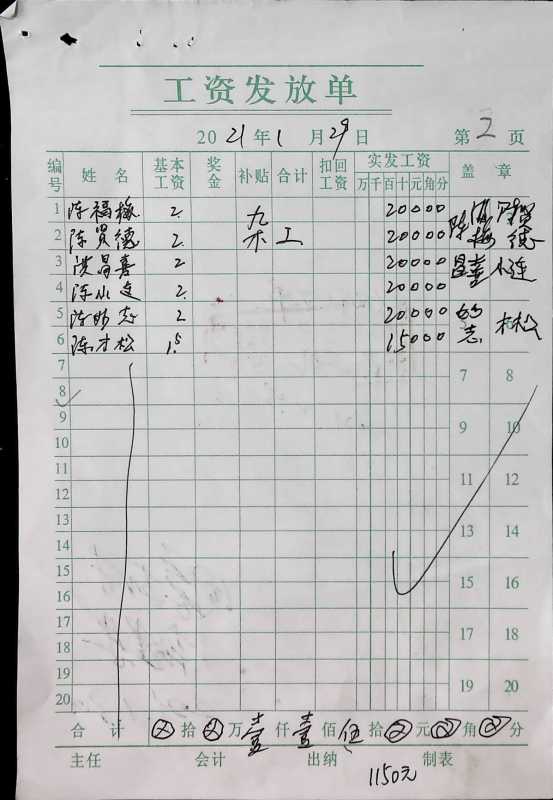 工资发放单
2021年1月29日 第2页
编号 姓名 基本工资 奖金 补贴 合计 扣回工资 实发工资 盖章
万千百十元角分
1 陈福梅 2 九 20000
2 陈贤德 2 木工 20000
3 洪昌喜 2 20000
4 陈小连 2 20000
5 陈 志 2 20000
6 陈才松 1.5 15000
7 7 8
8
9 9 10
10
11 11 12
12
13 13 14
14
15 15 16
16
17 17 18
18
19 19 20
20
合计 拾 万 壹仟壹佰伍拾 元 角 分
主任 会计 出纳 制表
1150元